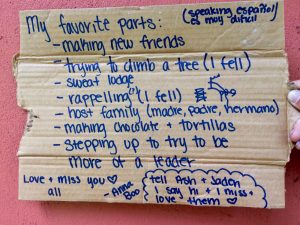 My favorite parts:
(speaking español es muy dificil)
- making new friends
- trying to climb a tree (I fell)
- sweat lodge
- rappelling (I fell)
- host family (madre, padre, hermano)
- making chocolate + tortillas
- stepping up to try to be
more of a leader
Love + miss you ♡
all
- Anna
Boo
tell Ash + Jaden
I say hi + I miss +
love them ♡